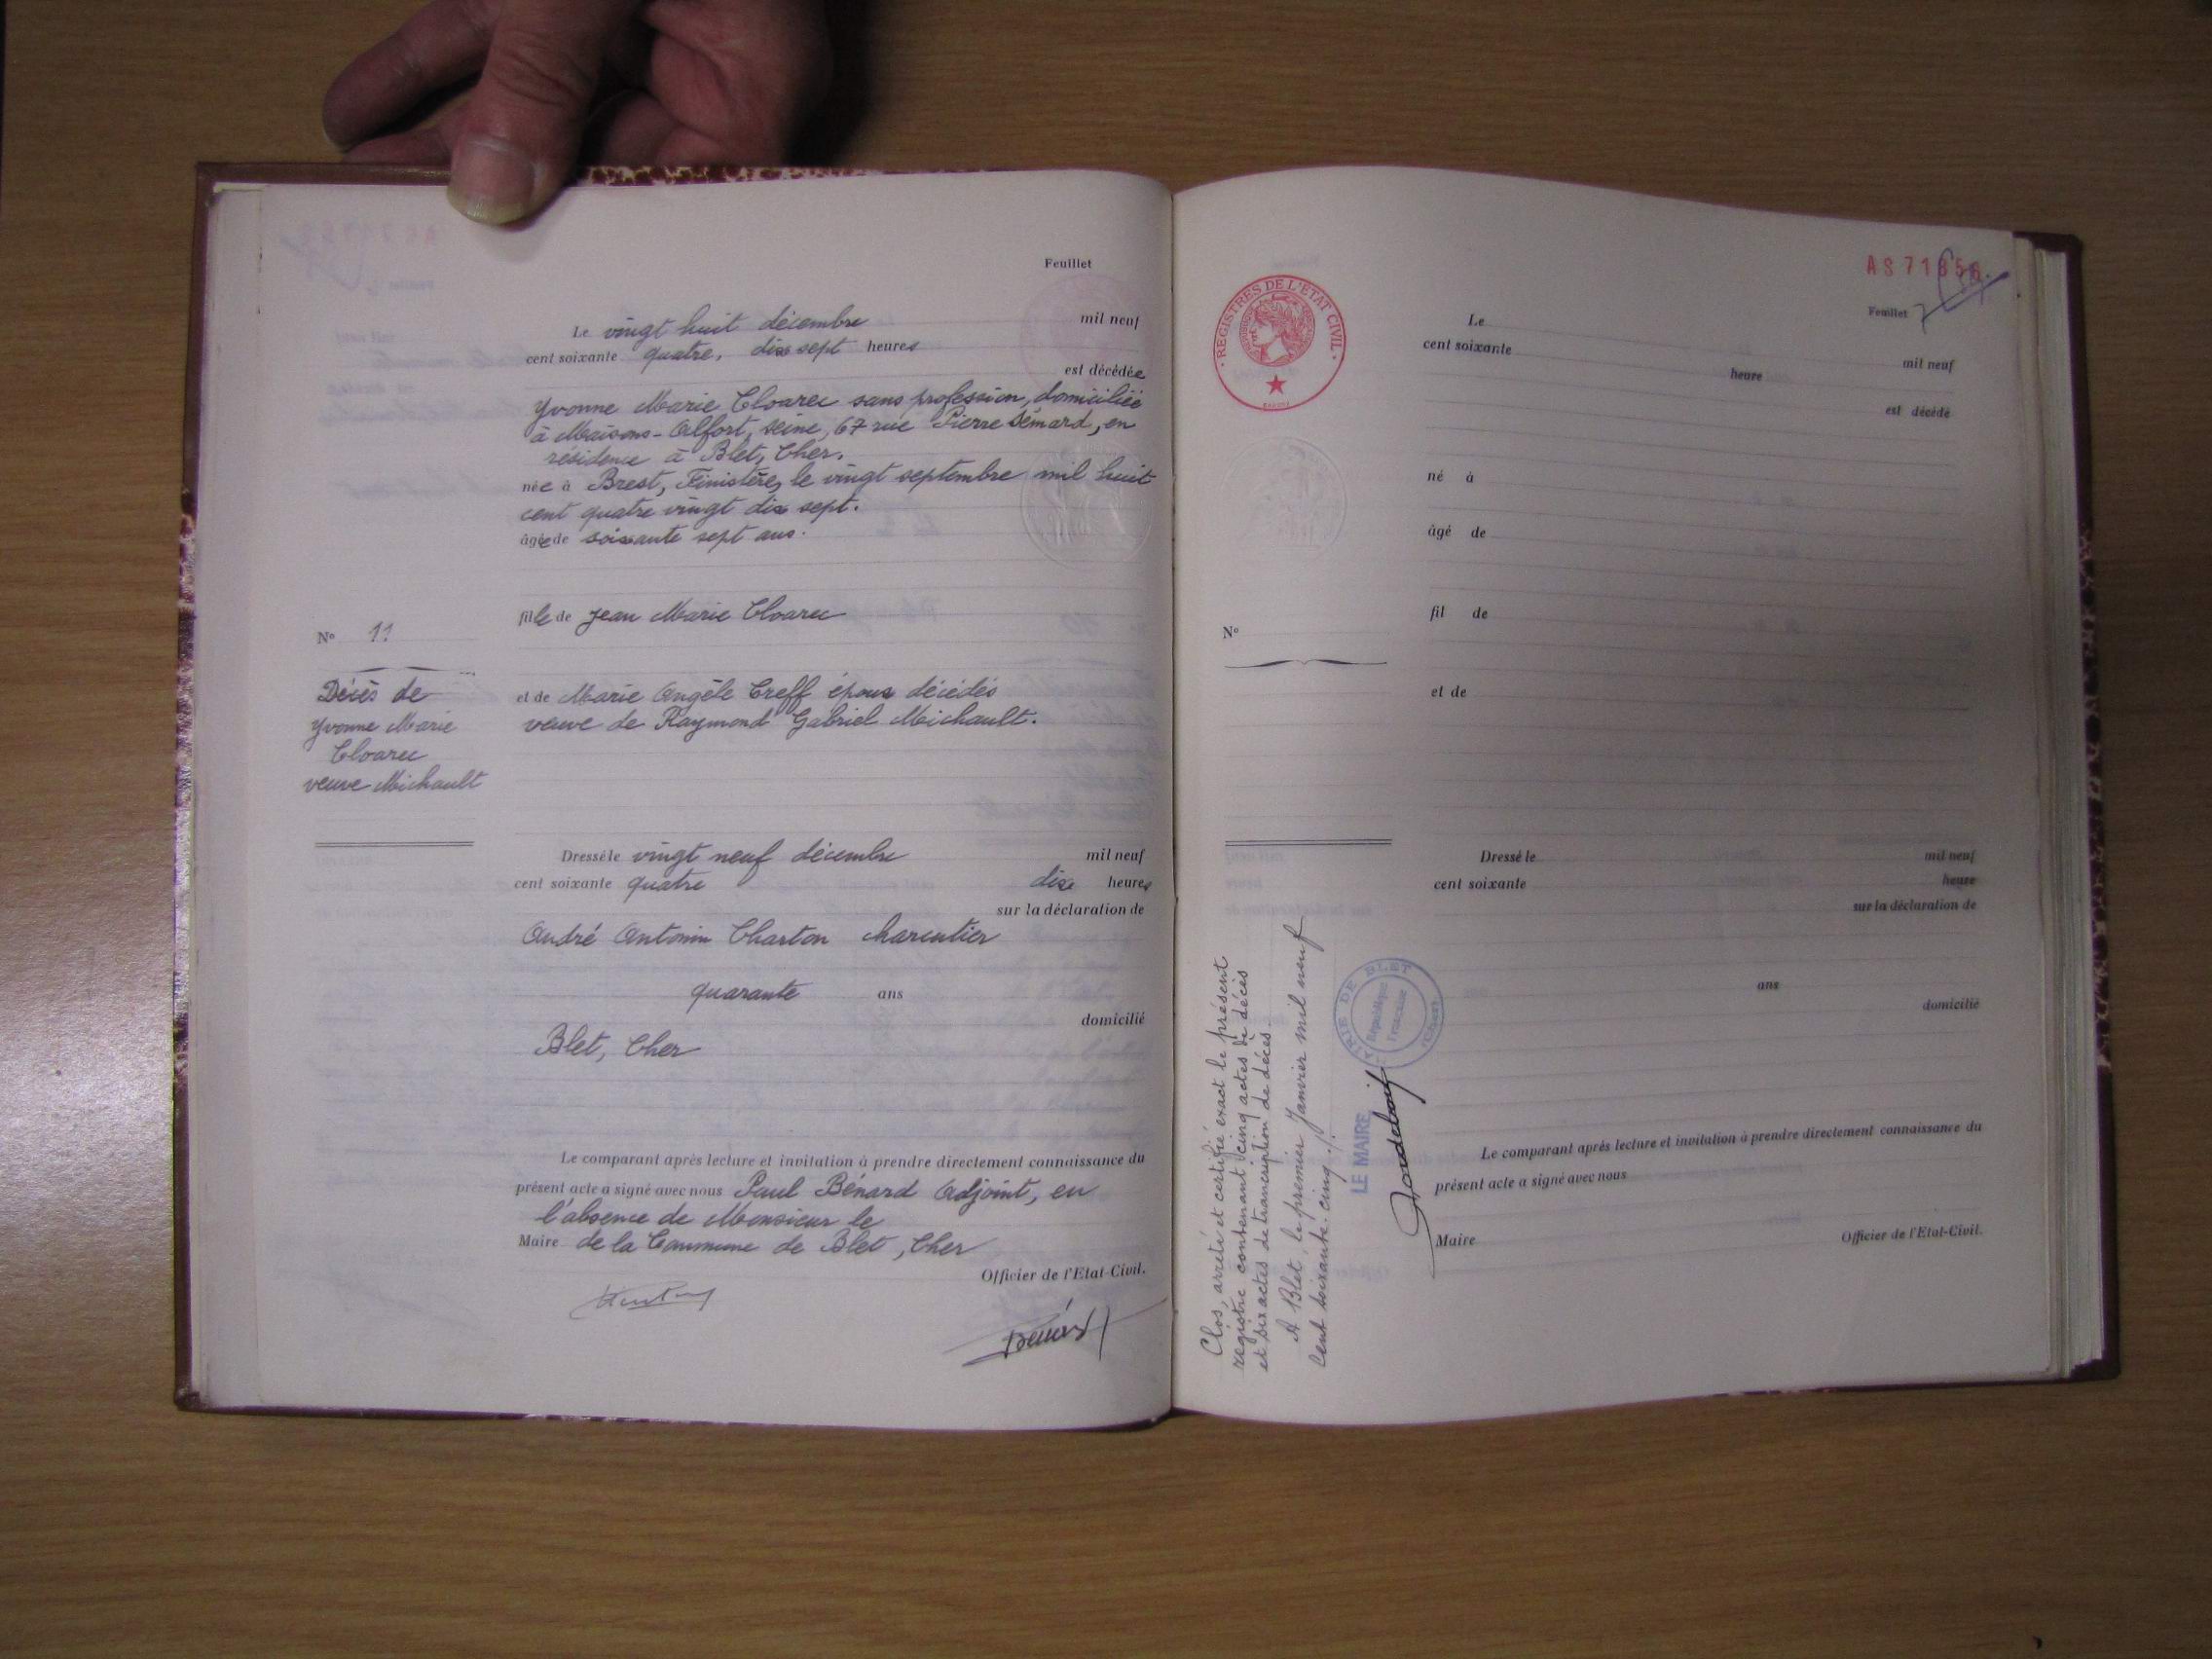 Feuillet
Le vingt huit décembre mil neuf
cent soixante quatre, dix sept heures
est décédée
Yvonne Marie Cloarec sans profession, domiciliée
à Maisons-Alfort, Seine, 67 rue Pierre Sémard, en
résidence à Blet, Cher.
née à Brest, Finistère, le vingt septembre mil huit
cent quatre vingt dix sept.
âgée de soixante sept ans.
fille de Jean Marie Cloarec
N° 11
Décès de
Yvonne Marie
Cloarec
veuve Michault
et de Marie Angèle Creff époux décédés
veuve de Raymond Gabriel Michault.
Dressé le vingt neuf décembre mil neuf
cent soixante quatre dix heures
sur la déclaration de
André Antonin Charton charcutier
quarante ans
domicilié
Blet, Cher
Le comparant après lecture et invitation à prendre directement connaissance du
présent acte a signé avec nous Paul Bénard Adjoint, en
l'absence de Monsieur le
Maire de la Commune de Blet, Cher
Officier de l'Etat-Civil.
Bénard
REGISTRES DE L'ETAT CIVIL
Feuillet
Le mil neuf
cent soixante heure
est décédé
né à
âgé de
fil de
N°
et de
Dressé le mil neuf
cent soixante heure
sur la déclaration de
ans
domicilié
Le comparant après lecture et invitation à prendre directement connaissance du
présent acte a signé avec nous
Maire Officier de l'Etat-Civil.
Clos, arrêté et certifié exact le présent
registre contenant cinq actes de décès
et six actes de transcription de décès.
A Blet, le premier Janvier mil neuf
cent soixante-cinq ./.
LE MAIRE
MAIRIE DE BLET
République
Française
(Cher)